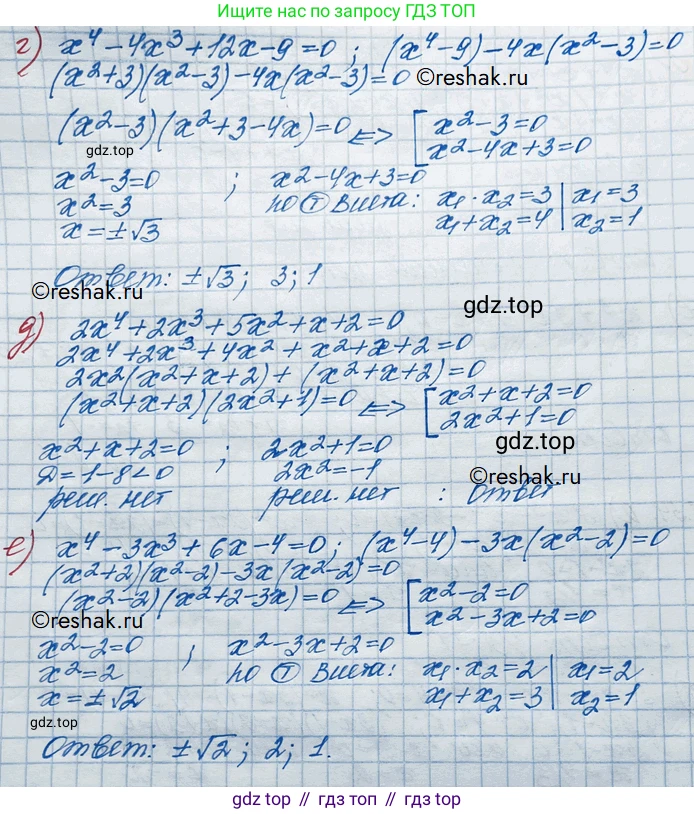 Ищите нас в поиске по запросу ГДЗ ТОП
г) x⁴ - 4x³ + 12x - 9 = 0; (x⁴ - 9) - 4x(x² - 3) = 0
(x² + 3)(x² - 3) - 4x(x² - 3) = 0
©reshak.ru
(x² - 3)(x² + 3 - 4x) = 0 <=> [ x² - 3 = 0
x² - 4x + 3 = 0
gdz.top
x² - 3 = 0 ; x² - 4x + 3 = 0
x² = 3 по Ⓣ Виета: x₁ · x₂ = 3 | x₁ = 3
x = ± √3 x₁ + x₂ = 4 | x₂ = 1
Ответ: ± √3; 3; 1
©reshak.ru
gdz.top
д) 2x⁴ + 2x³ + 5x² + x + 2 = 0
2x⁴ + 2x³ + 4x² + x² + x + 2 = 0
2x²(x² + x + 2) + (x² + x + 2) = 0
(x² + x + 2)(2x² + 1) = 0 <=> [ x² + x + 2 = 0
2x² + 1 = 0
gdz.top
x² + x + 2 = 0 ; 2x² + 1 = 0
Д = 1 - 8 < 0 2x² = -1
©reshak.ru
реш. нет реш. нет : Ответ
е) x⁴ - 3x³ + 6x - 4 = 0; (x⁴ - 4) - 3x(x² - 2) = 0
(x² + 2)(x² - 2) - 3x(x² - 2) = 0
(x² - 2)(x² + 2 - 3x) = 0 <=> [ x² - 2 = 0
x² - 3x + 2 = 0
©reshak.ru
x² - 2 = 0 ; x² - 3x + 2 = 0
x² = 2 по Ⓣ Виета: x₁ · x₂ = 2 | x₁ = 2
x = ± √2 x₁ + x₂ = 3 | x₂ = 1
gdz.top
Ответ: ± √2; 2; 1.
gdz top // гдз топ // gdz.top // гдз.топ